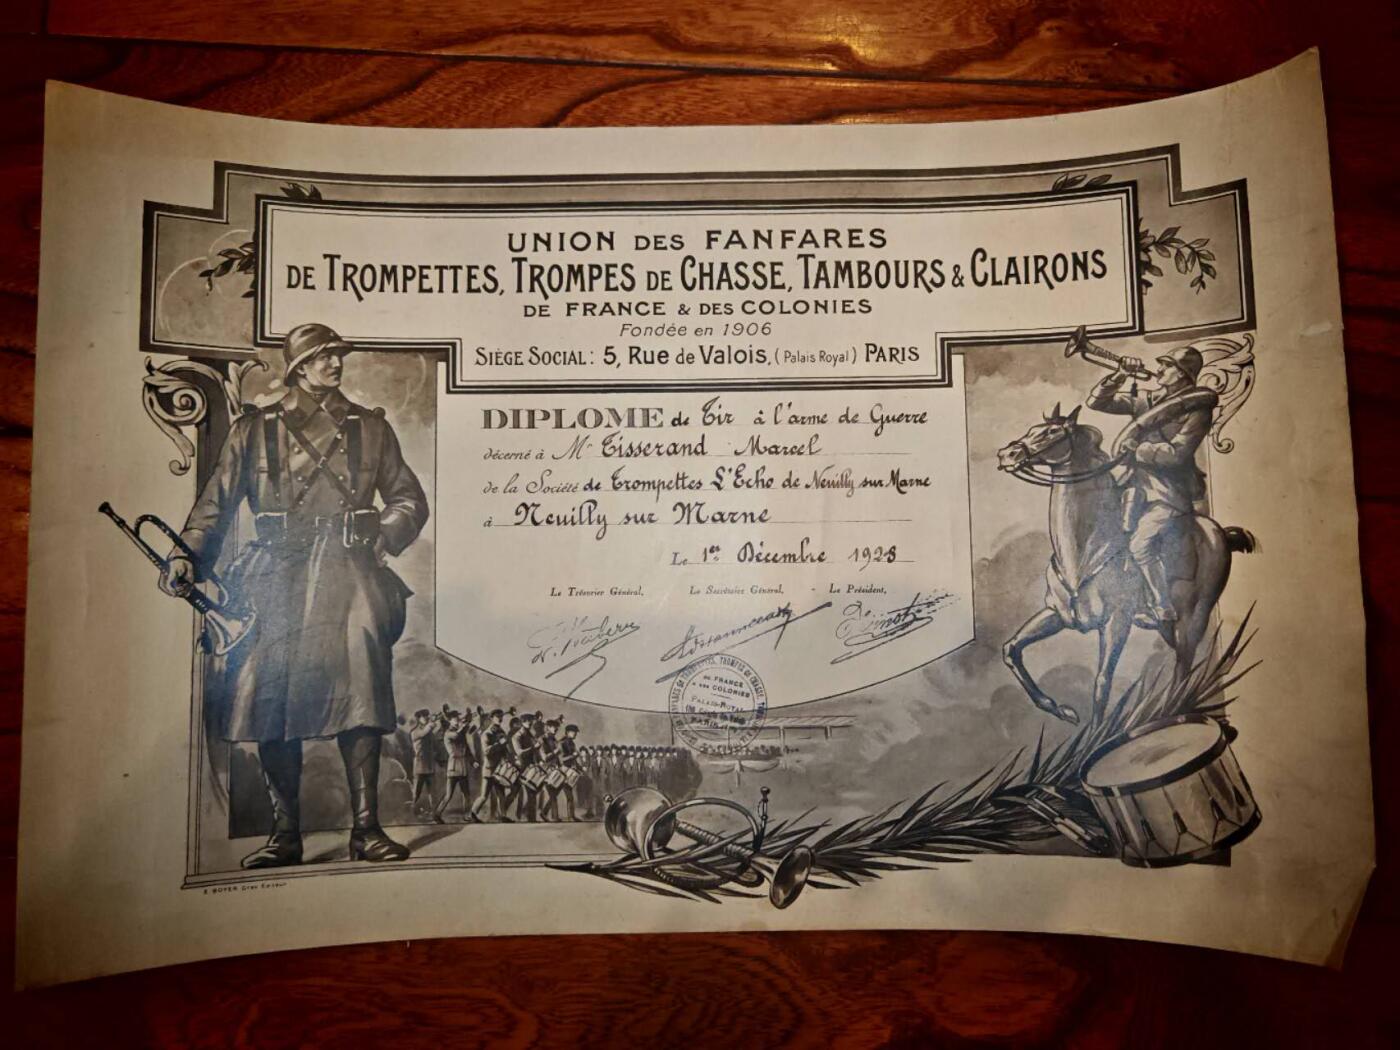 UNION DES FANFARES
DE TROMPETTES, TROMPES DE CHASSE, TAMBOURS & CLAIRONS
DE FRANCE & DES COLONIES
Fondée en 1906
SIÈGE SOCIAL : 5, Rue de Valois, (Palais Royal) PARIS
DIPLOME de Tir à l'arme de Guerre
décerné à Mr Tisserand Marcel
de la Société de Trompettes L'Echo de Neuilly sur Marne
à Neuilly sur Marne
Le 1er Décembre 1928
Le Trésorier Général, Le Secrétaire Général, Le Président,
DE TROMPETTES, TROMPES DE CHASSE,
DE FRANCE
& DES COLONIES
PALAIS-ROYAL
PARIS
E. BOYER Grav. Editeur